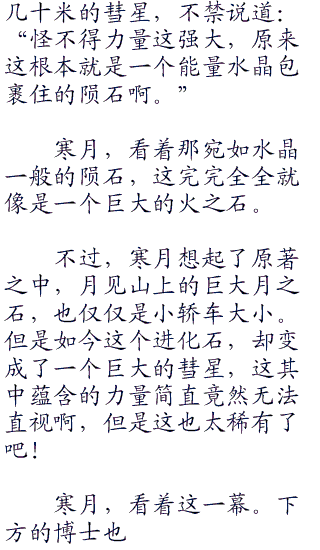 几十米的彗星，不禁说道：
“怪不得力量这强大，原来
这根本就是一个能量水晶包
裹住的陨石啊。”
寒月，看着那宛如水晶
一般的陨石，这完完全全就
像是一个巨大的火之石。
不过，寒月想起了原著
之中，月见山上的巨大月之
石，也仅仅是小轿车大小。
但是如今这个进化石，却变
成了一个巨大的彗星，这其
中蕴含的力量简直竟然无法
直视啊，但是这也太稀有了
吧！
寒月，看着这一幕。下
方的博士也